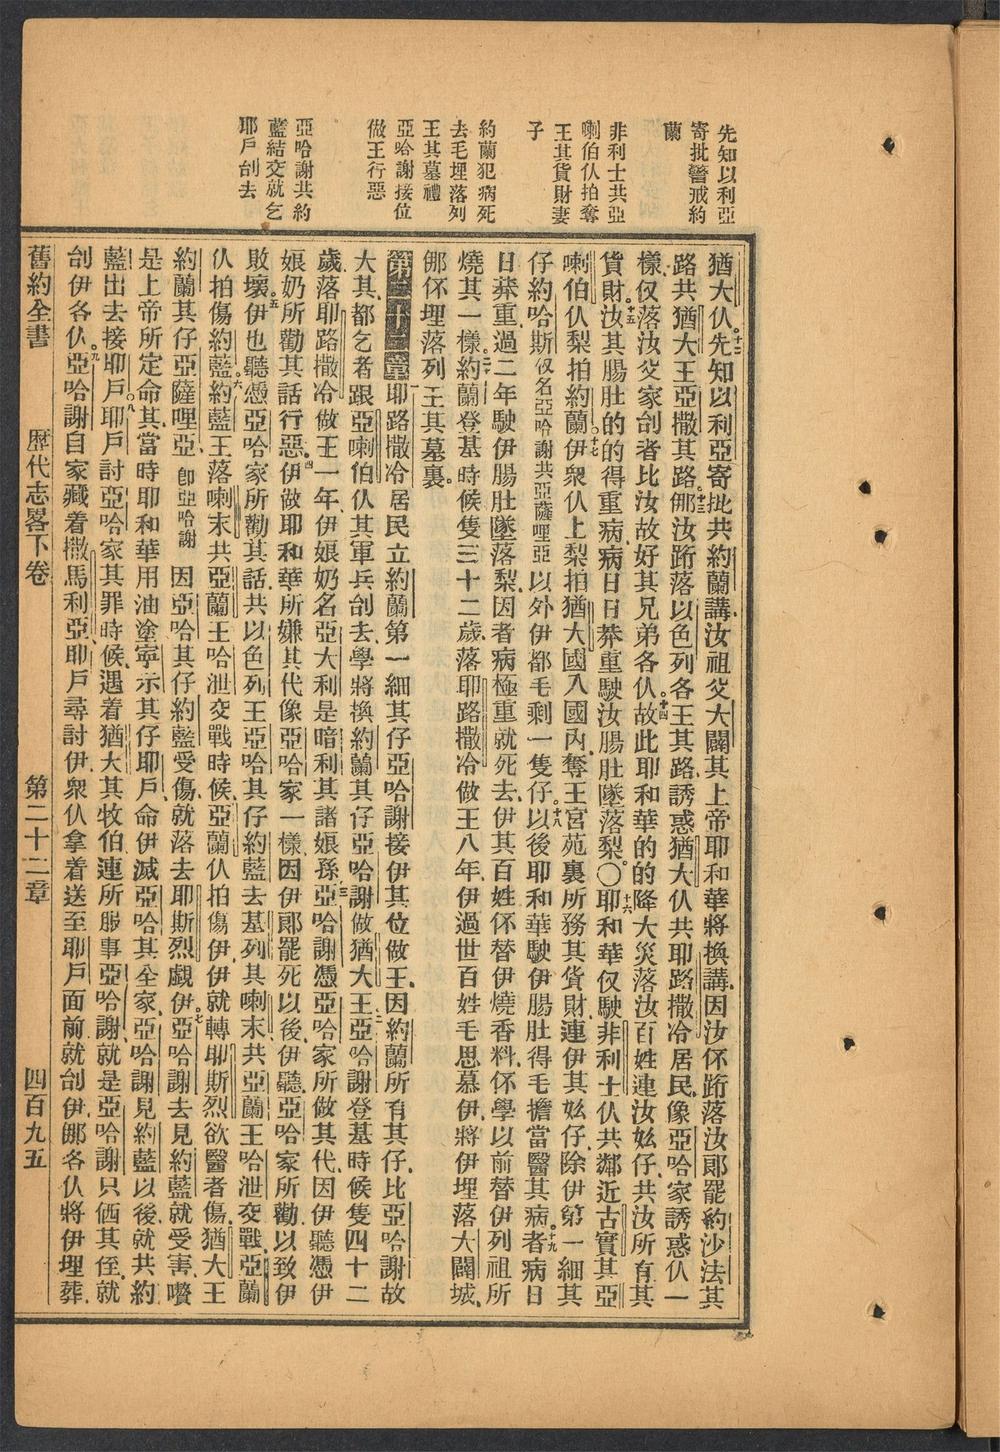 先知以利亞
寄批警戒約
蘭
非利士共亞
喇伯仈拍奪
王其貨財妻
子
約蘭犯病死
去毛埋落列
王其墓禮
亞哈謝接位
做王行惡
亞哈謝共約
藍結交就乞
耶戶刣去
猶大仈十二先知以利亞寄批共約蘭講汝祖父大闢其上帝耶和華將換講因汝伓跡落汝郎罷約沙法其
路共猶大王亞撒其路十三㑚汝跡落以色列各王其路誘惑猶大仈共耶路撒冷居民像亞哈家誘惑仈一
樣仅落汝父家刣者比汝故好其兄弟各仈十四故此耶和華的的降大災落汝百姓連汝妶仔共汝所有其
貨財十五汝其腸肚的的得重病病日日莽重駛汝腸肚墜落梨〇十六耶和華仅駛非利士仈共鄰近古實其亞
喇伯仈梨拍約蘭十七伊衆仈上梨拍猶大國入國內奪王宮苑裏所務其貨財連伊其妶仔除伊第一細其
仔約哈斯仅名亞哈謝共亞薩哩亞以外伊都毛剩一隻仔十八以後耶和華駛伊腸肚得毛擔當醫其病十九者病日
日莽重過二年駛伊腸肚墜落梨因者病極重就死去伊其百姓伓替伊燒香料伓學以前替伊列祖所
燒其一樣二十約蘭登基時候隻三十二歲落耶路撒冷做王八年伊過世百姓毛思慕伊將伊埋落大闢城
㑚伓埋落列王其墓裏
第二十二章一耶路撒冷居民立約蘭第一細其仔亞哈謝接伊其位做王因約蘭所有其仔比亞哈謝故
大其都乞者跟亞喇伯仈其軍兵刣去學將換約蘭其仔亞哈謝做猶大王二亞哈謝登基時候隻四十二
歲落耶路撒冷做王一年伊娘奶名亞大利是暗利其諸娘孫三亞哈謝憑亞哈家所做其代因伊聽憑伊
娘奶所勸其話行惡四伊做耶和華所嫌其代像亞哈家一樣因伊郎罷死以後伊聽亞哈家所勸以致伊
敗壞五伊也聽憑亞哈家所勸其話共以色列王亞哈其仔約藍去基列其喇末共亞蘭王哈泄交戰亞蘭
仈拍傷約藍六約藍王落喇末共亞蘭王哈泄交戰時候亞蘭仈拍傷伊伊就轉耶斯烈欲醫者傷猶大王
約蘭其仔亞薩哩亞卽亞哈謝因亞哈其仔約藍受傷就落去耶斯烈覷伊七亞哈謝去見約藍就受害嚽
是上帝所定命其當時耶和華用油塗寧示其仔耶戶命伊滅亞哈其全家亞哈謝見約藍以後就共約
藍出去接耶戶八耶戶討亞哈家其罪時候遇着猶大其牧伯連所服事亞哈謝就是亞哈謝只価其侄就
刣伊各仈九亞哈謝自家藏着撒馬利亞耶戶尋討伊衆仈拿着送至耶戶面前就刣伊㑚各仈將伊埋葬
舊約全書　歷代志畧下卷　第二十二章　四百九五